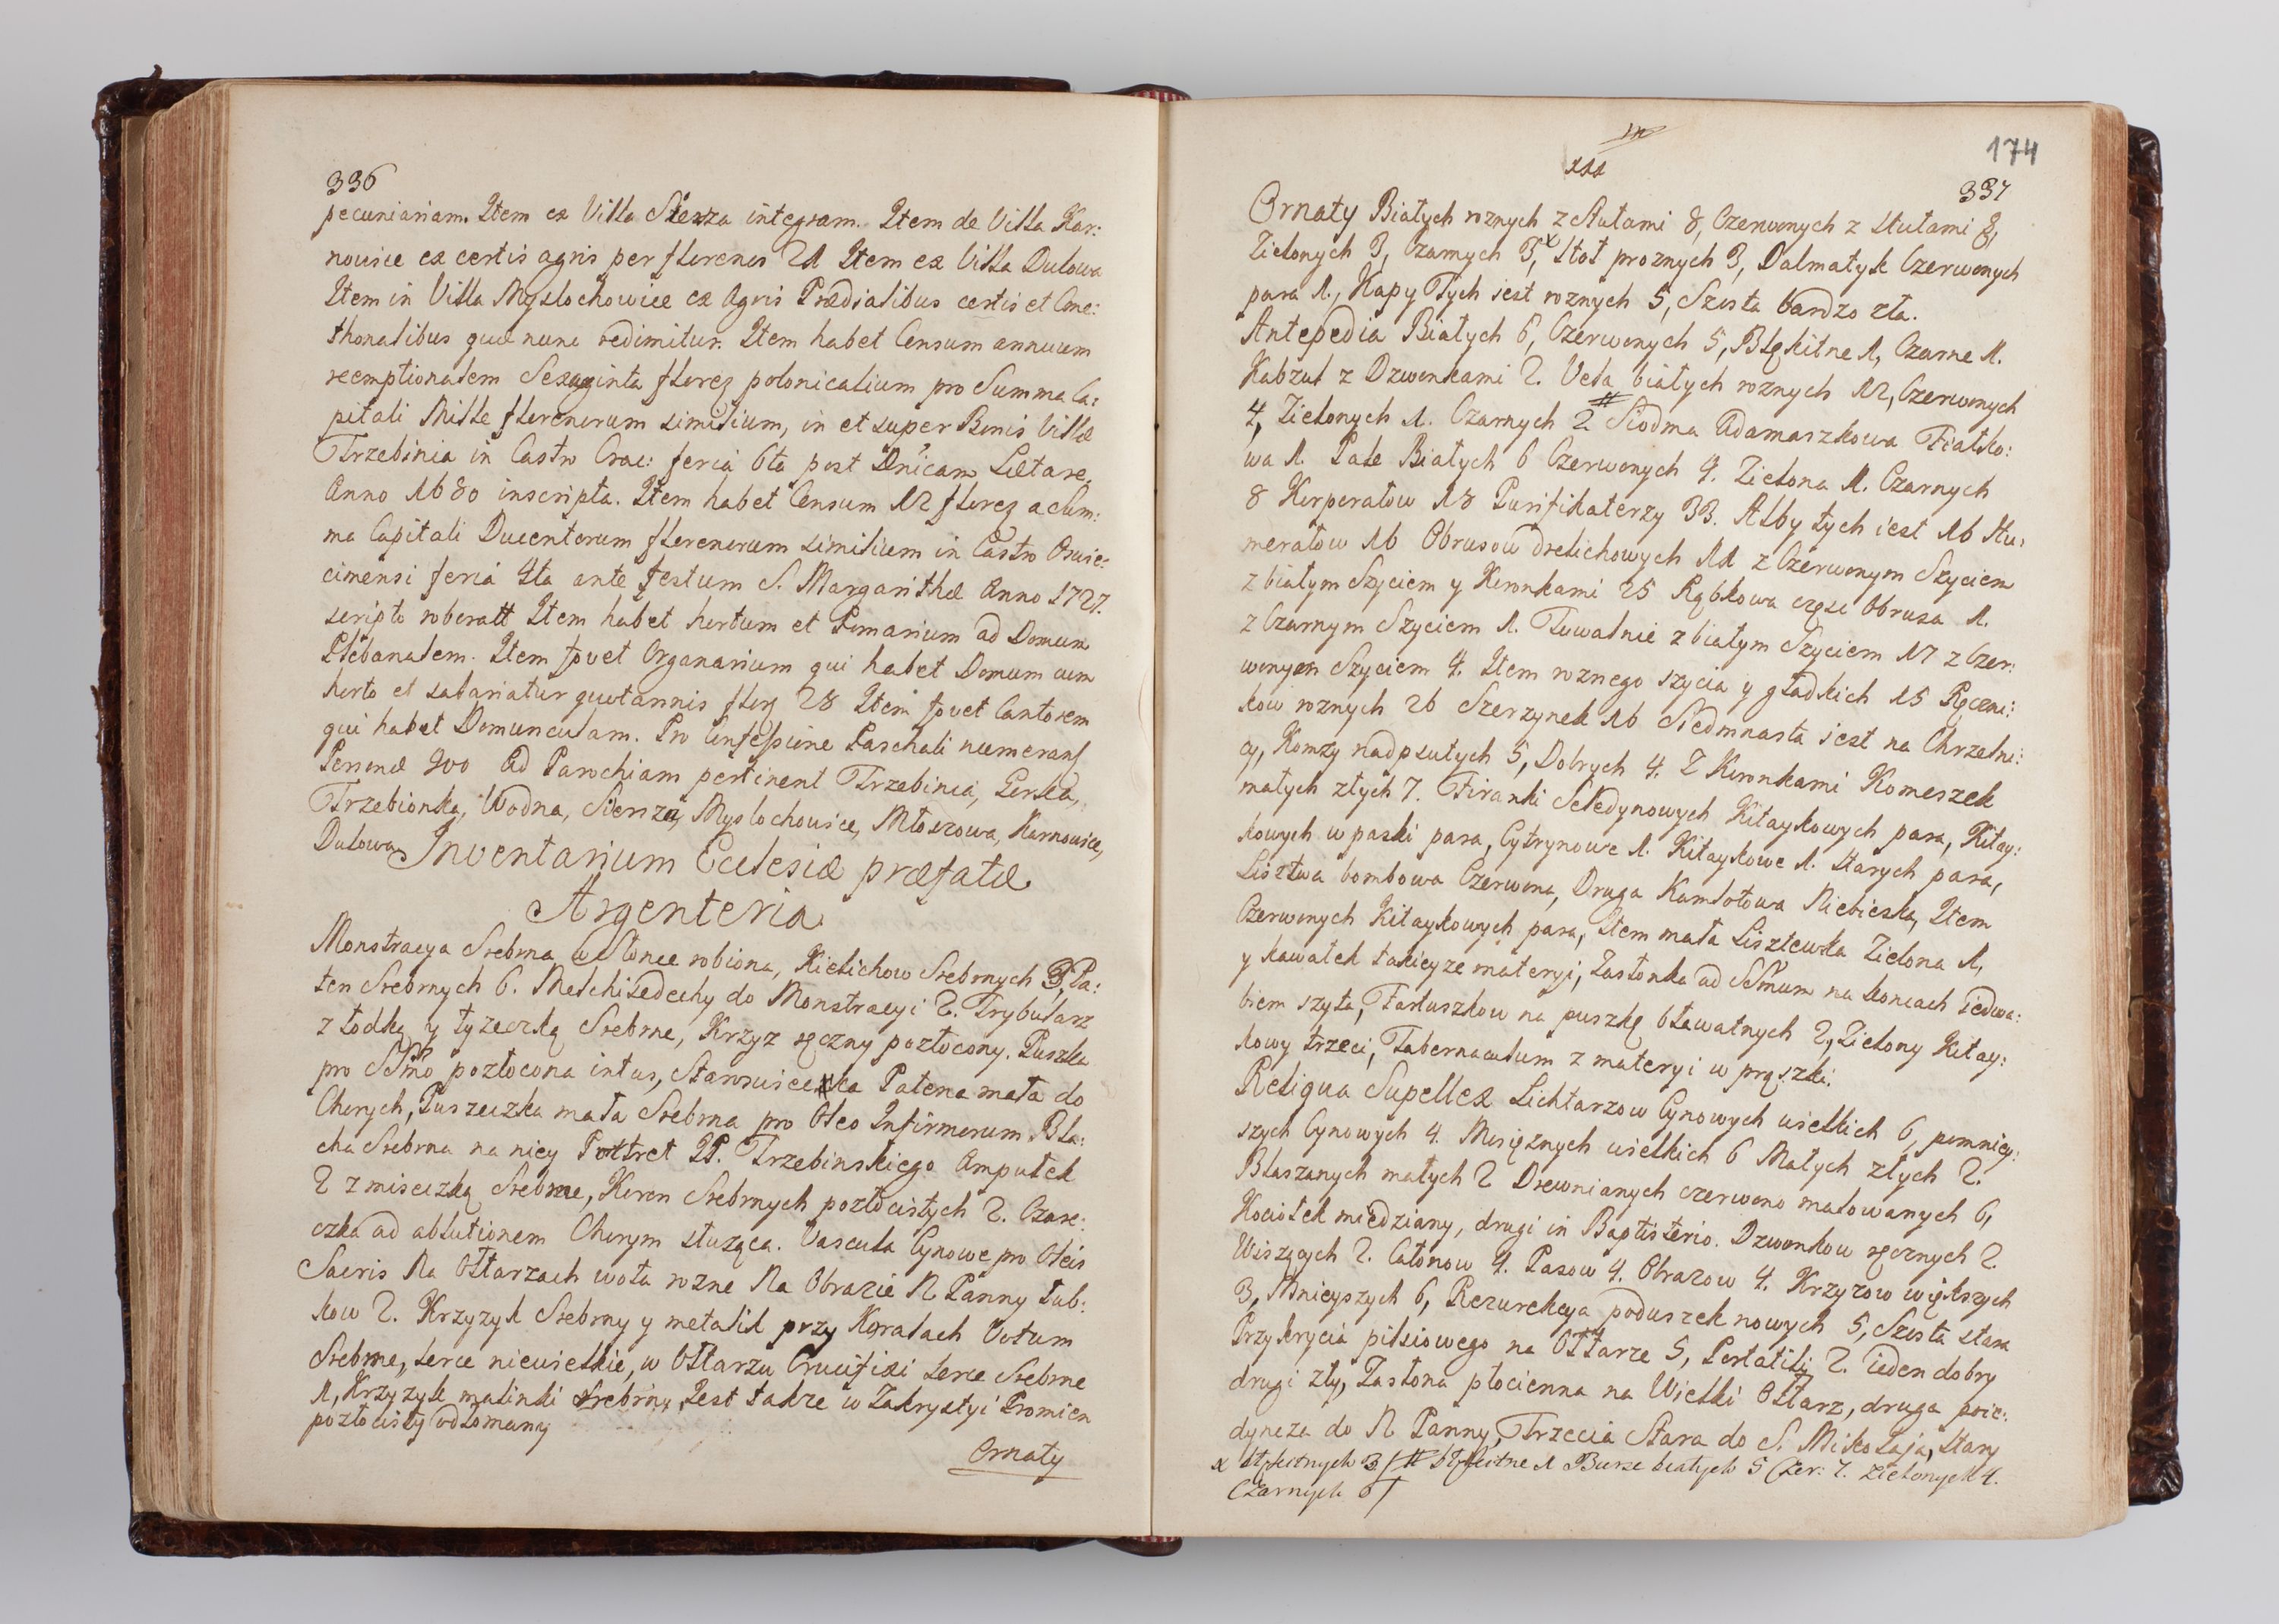 336
pecuniariam. Item ex Villa Siersza integram. Item de Villa Kar:
niowice ex certis agris per florenos 21 Item ex Villa Dulowa
Item in Villa Myslochowice ex Agris Prædialibus certis et Cme:
thonalibus quæ nunc redimitur. Item habet Censum annuum
reemptionalem Sexaginta florez polonicalium pro Summa Ca:
pitali Mille florenorum similium, in et super Bonis Villæ
Trzebinia in Castro Crac: feria 6ta post Dnicam Lætare
Anno 1680 inscripta. Item habet Censum 12 florez a Sum:
ma Capitali Ducentorum florenorum similium in Castro Oswie:
cimensi feria 4ta ante festum S. Margarithæ Anno 1727.
scripto roboratt Item habet hortum et Pomarium ad Domum
Plebanalem. Item fovet Organarium qui habet Domum cum
horto et salariatur quotannis florz 28 Item fovet Cantorem
qui habet Domunculam. Pro Confessione Paschali numerant
Personæ 900 Ad Parochiam pertinent Trzebinia,
Trzebionka, Wodna, Siersza, Myslochowice, Młoszowa, Karniowice,
Dulowa Inventarium Ecclesiæ præfatæ
Argenteria
Monstracya Srebrna w Słonce robiona, Kielichow Srebrnych 3, Pa:
ten Srebrnych 6. Melchisedechy do Monstracyi 2. Trybularz
z łodką y łyzeczką Srebrne, Krzyz ręczny pozłocony. Puszka
pro SSmo pozłocona intus, Staroswiecka Patena mała do
Chorych, Puszeczka mała Srebrna pro Oleo Infirmorum Bla:
cha Srebrna na niey Portret JP. Trzebinskiego Ampułek
2 z miseczką Srebrne, Koron Srebrnych pozłocistych 2. Czare:
czka ad ablutionem Chorym słuząca. Vascula Cynowe pro Oleis
Sacris Na Ołtarzach wota rozne Na Obrazie N Panny Tab:
kow 2. Krzyzyk Srebrny y metalik przy Koralach Votum
Srebrne, serce niewielkie, w Ołtarzu Crucifixi serce Srebrne
1, Krzyzyk malinki Srebrny Jest takze w Zakrystyi Promien
pozłocisty odłomany
Ornaty
174
337
Ornaty Białych roznych z Stułami 8, Czerwonych z Stułami 8,
Zielonych 3, Czarnych 3,x Stoł proznych 3, Dalmatyk Czerwonych
para 1., Kapy Tych jest roznych 5, Szosta bardzo zła.
Antepedia Białych 6, Czerwonych 5, Błękitne 1, Czarne 1.
Kabzul z Dzwonkami 2. Vela białych roznych 12, Czerwonych
4, Zielonych 1. Czarnych 2 # Siodma Adamaszkowa Fiałko:
wa 1. Pale Białych 6 Czerwonych 4. Zielona 1. Czarnych
8 Korporałow 18 Puryfikaterzy 33. Alby tych iest 16 Hu:
merałow 16 Obrusow drelichowych 11 z Czerwonym Szyciem
z białym Szyciem y Koronkami 25 Rąbkowa częsc Obrusa 1.
z Czarnym Szyciem 1. Tuwalnie z białym Szyciem 17 z Czer:
wonym Szyciem 4. Item roznego szycia y gładkich 15 Ręczni:
kow roznych 26 Szerzynek 16 Siedmnasta jest na Chrzelni:
cy, Komzy nadpsutych 5, Dobrych 4. Z Koronkami Komeszek
małych złych 7. Firanki Seledynowych Kitaykowych para, Kitay:
kowych w paski para, Cytrynowe 1. Kitaykowe 1. starych para,
Lisztwa bombowa Czerwona, Druga Kamlotowa Niebieska, Item
Czerwonych Kitaykowych para, Item mała Lisztewka Zielona 1,
y kawałek takieyze materyi, Zasłonka ad SSmum na koncach iedwa:
biem szyta, Fartuszkow na puszkę bławatnych 2, Zielony Kitay:
kowy trzeci, Tabernaculum z materyi w prązki.
Reliqua Supellex Lichtarzow Cynowych wielkich 6, pomniey:
szych Cynowych 4. Mosięznych wielkich 6 Małych złych 2.
Blaszanych małych 2 Drewnianych czerwono malowanych 6,
Kociołek miedziany, drugi in Baptisterio. Dzwonkow ręcznych 2.
Wiszących 2. Całonow 4. Pasow 4. Obrazow 4. Krzyzow większych
3, Mnieyszych 6, Rezurekcya poduszek nowych 5, Szosta stara
Przykrycia pilsiowego na Ołtarze 5, Portatily 2. ieden dobry
drugi zły, Zasłona płocienna na Wielki Ołtarz, druga poie:
dyncza do N Panny, Trzecia Stara do S. Mikołaja, stary
x błękitnych 3/ # błękitne 1 Burse białych 5 Czer: 7. Zielonych 4.
Czarnych 6/